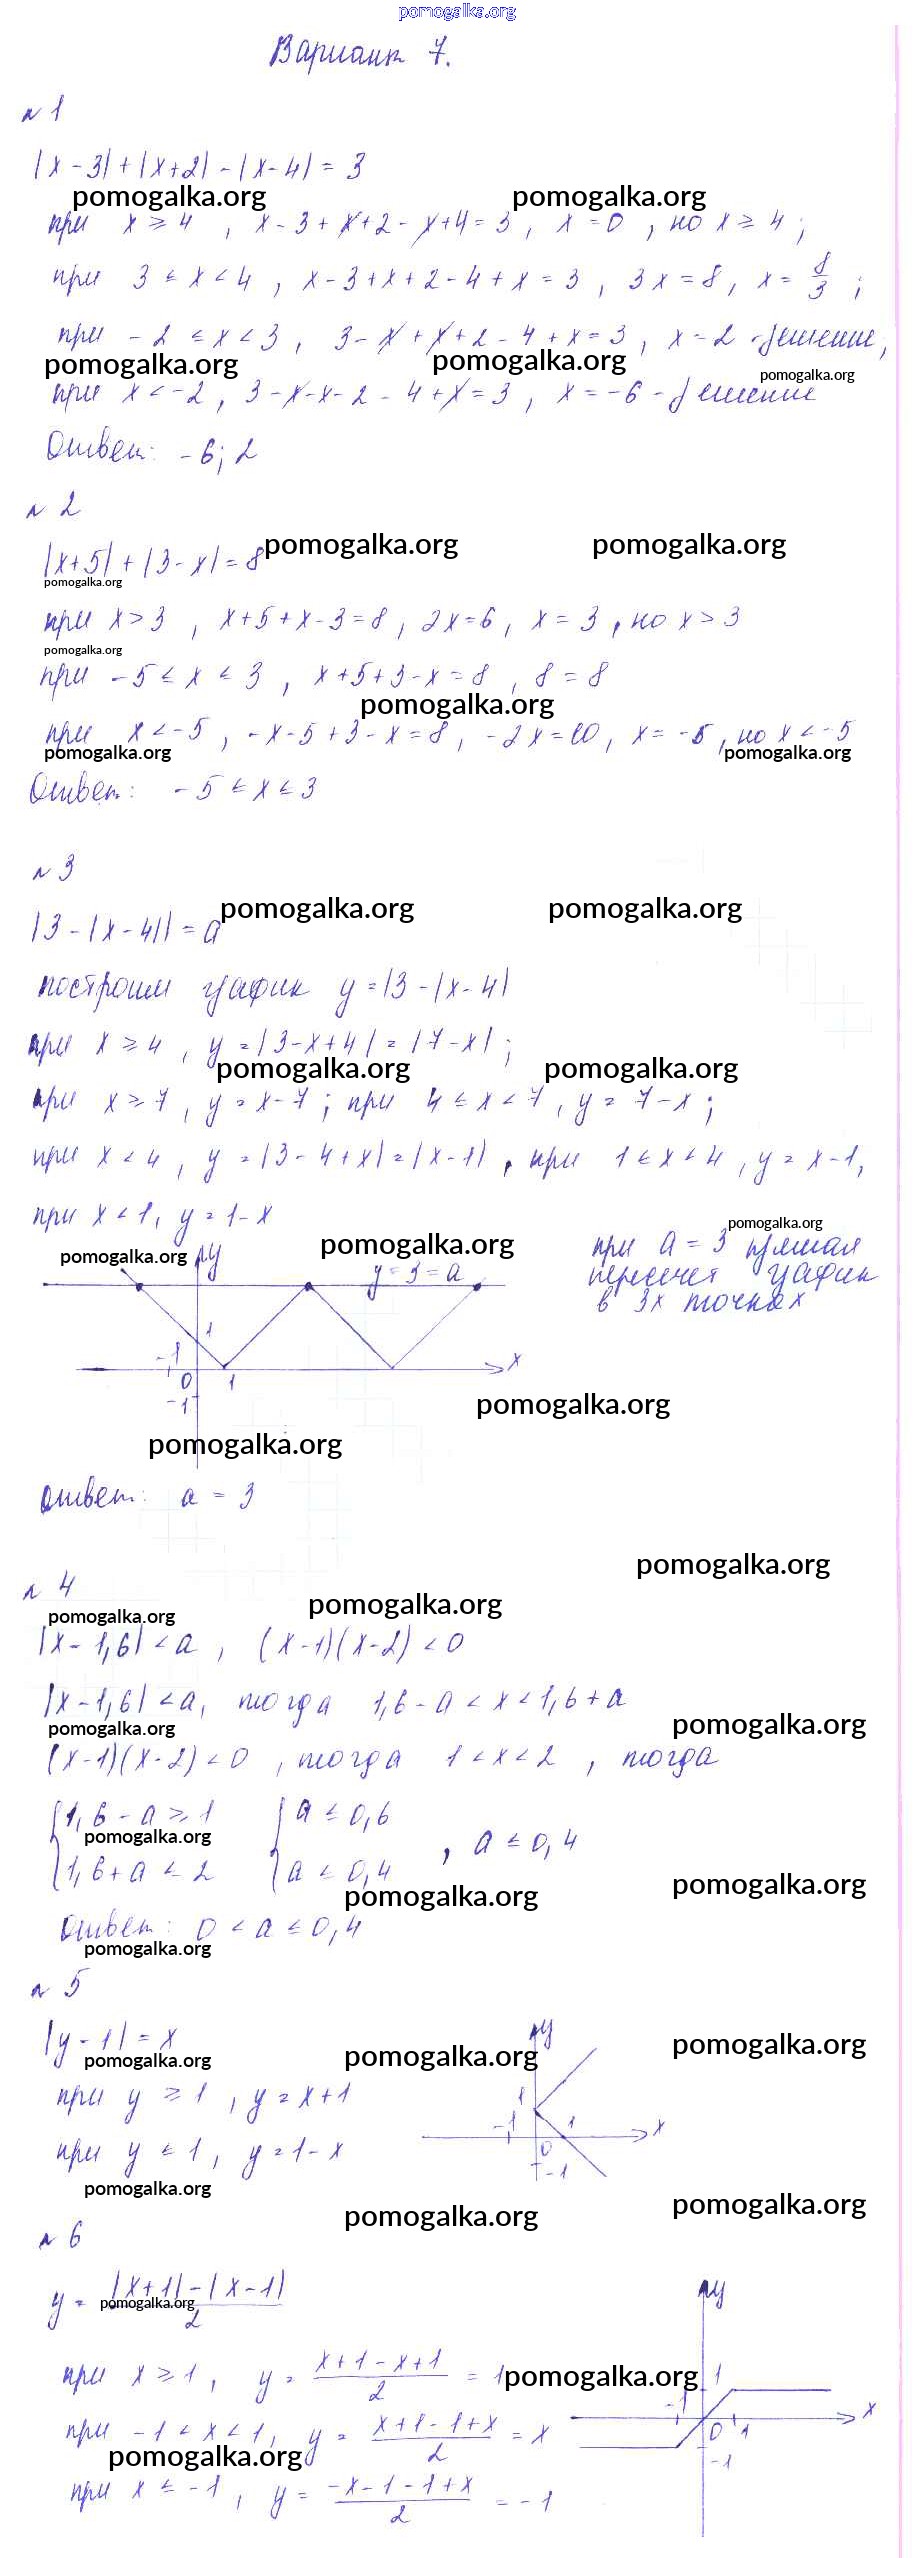 pomogalka.org
Вариант 7.
№ 1
|x - 3| + |x+2| - |x-4| = 3
pomogalka.org pomogalka.org
при x ≥ 4 , x - 3 + x + 2 - x + 4 = 3 , x = 0 , но x ≥ 4 ;
при 3 ≤ x < 4 , x - 3 + x + 2 - 4 + x = 3 , 3x = 8 , x = 8/3 ;
при - 2 ≤ x < 3 , 3 - x + x + 2 - 4 + x = 3 , x = 2 - решение ;
pomogalka.org pomogalka.org pomogalka.org
при x < -2 , 3 - x - x - 2 - 4 + x = 3 , x = -6 - решение
Ответ: - 6 ; 2
№ 2
|x+5| + |3-x| = 8 pomogalka.org pomogalka.org
pomogalka.org
при x > 3 , x + 5 + x - 3 = 8 , 2x = 6 , x = 3 , но x > 3
pomogalka.org
при - 5 ≤ x ≤ 3 , x + 5 + 3 - x = 8 , 8 = 8
pomogalka.org
при x < -5 , -x - 5 + 3 - x = 8 , -2x = 10 , x = -5 , но x < -5
pomogalka.org pomogalka.org
Ответ: - 5 ≤ x ≤ 3
№ 3
pomogalka.org pomogalka.org
|3 - |x - 4|| = a
построим график y = |3 - |x - 4|
при x ≥ 4 , y = |3 - x + 4| = |7 - x| ;
pomogalka.org pomogalka.org
при x ≥ 7 , y = x - 7 ; при 4 ≤ x < 7 , y = 7 - x ;
при x < 4 , y = |3 - 4 + x| = |x - 1| , при 1 ≤ x < 4 , y = x - 1 ,
при x < 1 , y = 1 - x
pomogalka.org pomogalka.org pomogalka.org
при a = 3 прямая
пересечет график
в 3х точках
y
y = 3 = a
1
-1
0 1 x
-1
pomogalka.org
pomogalka.org
Ответ: a = 3
pomogalka.org
№ 4
pomogalka.org pomogalka.org
|x - 1,6| < a , (x - 1)(x - 2) < 0
|x - 1,6| < a , тогда 1,6 - a < x < 1,6 + a
pomogalka.org pomogalka.org
(x - 1)(x - 2) < 0 , тогда 1 < x < 2 , тогда
{1,6 - a ≥ 1 {a ≤ 0,6
pomogalka.org , a ≤ 0,4
{1,6 + a ≤ 2 {a ≤ 0,4
pomogalka.org pomogalka.org
Ответ: 0 < a ≤ 0,4
pomogalka.org
№ 5
|y - 1| = x
pomogalka.org pomogalka.org pomogalka.org
при y ≥ 1 , y = x + 1
при y ≤ 1 , y = 1 - x
y
1
-1 1 x
0
-1
pomogalka.org
pomogalka.org pomogalka.org
№ 6
y = |x+1| - |x-1| / 2
pomogalka.org
при x ≥ 1 , y = x + 1 - x + 1 / 2 = 1
pomogalka.org
при - 1 < x < 1 , y = x + 1 - 1 + x / 2 = x
pomogalka.org
при x ≤ - 1 , y = -x - 1 - 1 + x / 2 = - 1
y
1
-1 x
0 1
-1